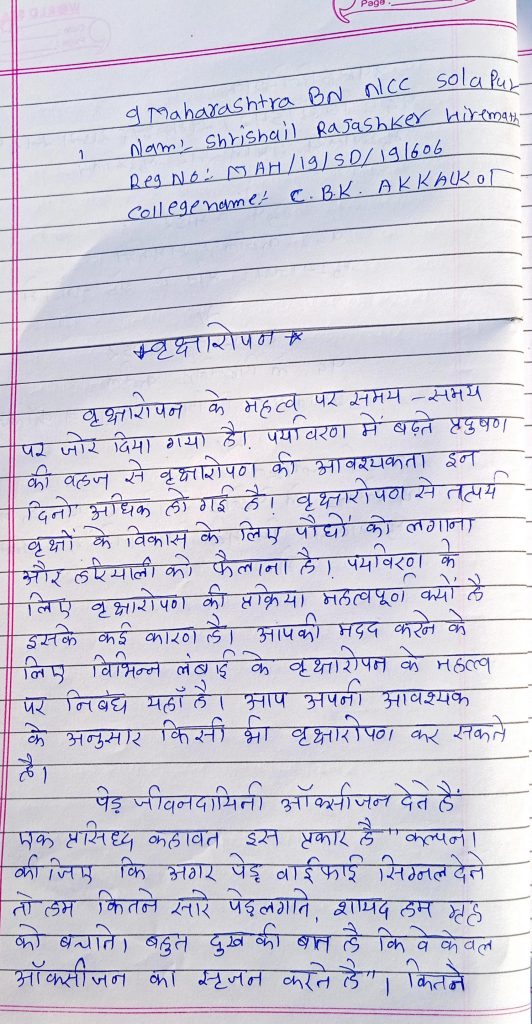 Page
9 Maharashtra BN NCC Solapur
Name:- Shrishail Rajashker Hiremath
Reg No:- MAH/19/SD/191606
College name:- C.B.K. AKKALKOT
वृक्षारोपन
वृक्षारोपन के महत्व पर समय-समय
पर जोर दिया गया है। पर्यावरण में बढ़ते प्रदुषण
की वहज से वृक्षारोपण की आवश्यकता इन
दिनों अधिक हो गई है। वृक्षारोपण से तत्पर्य
वृक्षों के विकास के लिए पौधों को लगाना
और हरियाली को फैलाना है। पर्यावरण के
लिए वृक्षारोपण की प्राक्रिया महत्वपूर्ण क्यों है
इसके कई कारण है। आपकी मदद करने के
लिए विभिन्न लंबाई के वृक्षारोपन के महत्व
पर निबंध यहाँ है। आप अपनी आवश्यक
के अनुसार किसी भी वृक्षारोपण कर सकते
है।
पेड़ जीवनदायिनी ऑक्सीजन देते हैं
एक प्रसिध्द कहावत इस प्रकार है "कल्पना
कीजिए कि अगर पेड़ वाईफाई सिग्नल देते
तो हम कितने सारे पेड़ लगाते, शायद हम ग्रह
को बचाते। बहुत दुख की बात है कि वे केवल
ऑक्सीजन का सृजन करते है"। कितने